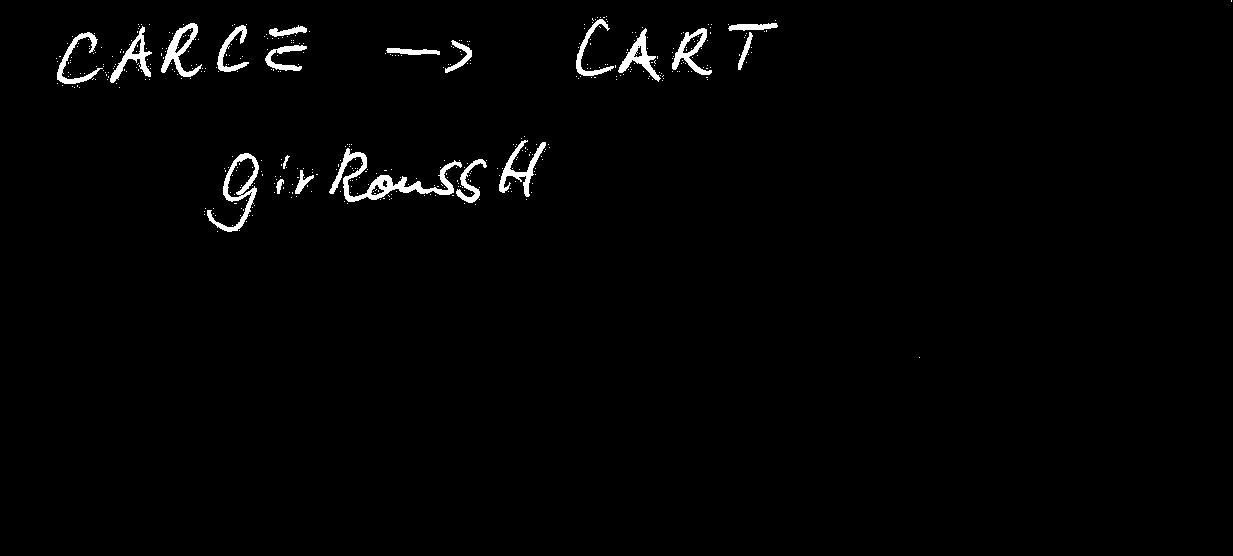 CARCE → CART
girRoussH